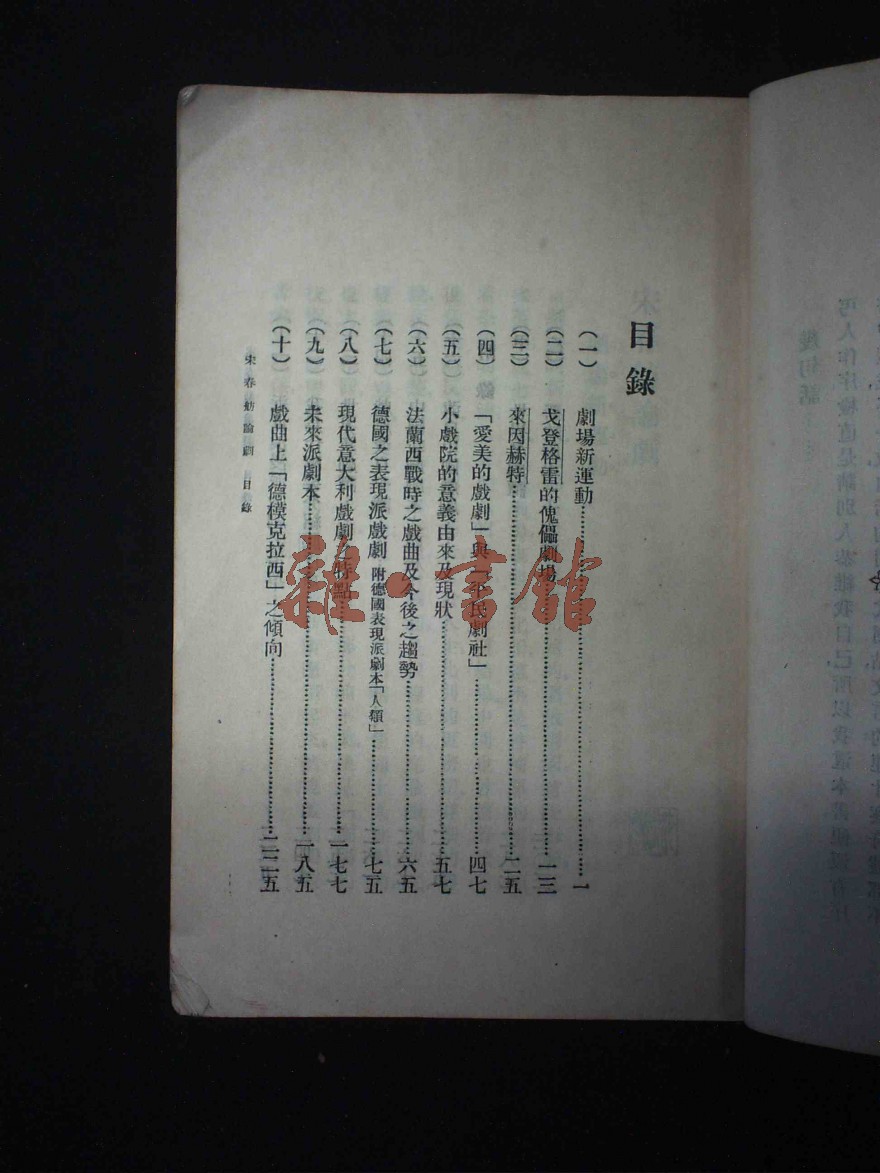 目錄
(一) 劇場新運動……一
(二) 戈登格雷的傀儡劇場……一三
(三) 來因赫特……二五
(四) 「愛美的戲劇」與「平民劇社」……四七
(五) 小戲院的意義由來及現狀……五七
(六) 法蘭西戰時之戲曲及今後之趨勢……六五
(七) 德國之表現派戲劇 附德國表現派劇本「人類」……七五
(八) 現代意大利戲劇之特點……一七七
(九) 未來派劇本……一八五
(十) 戲曲上「德模克拉西」之傾向……二二五
宋春舫論劇 目錄
雜·書館